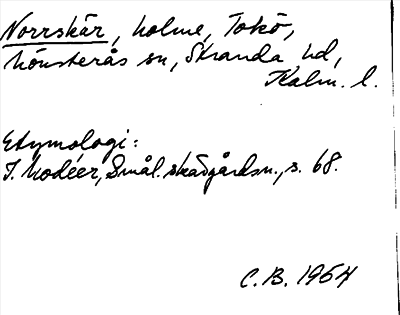 Norrskär, holme, Tokö,
Mönsterås sn, Stranda hd,
Kalm. l.
Etymologi:
I. Modéer, Smål. skärgårdsn., s. 68.
C.B. 1964